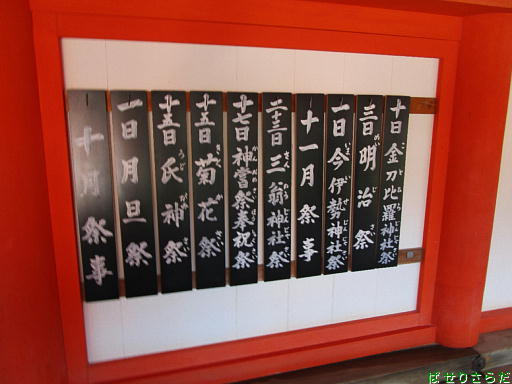 十月祭事
一日月旦祭
十五日氏神祭
十五日菊花祭
十七日神嘗祭奉祝祭
二十三日三翁神社祭
十一月祭事
一日今伊勢神社祭
三日明治祭
十日金刀比羅神社祭
ぱせりさらだ